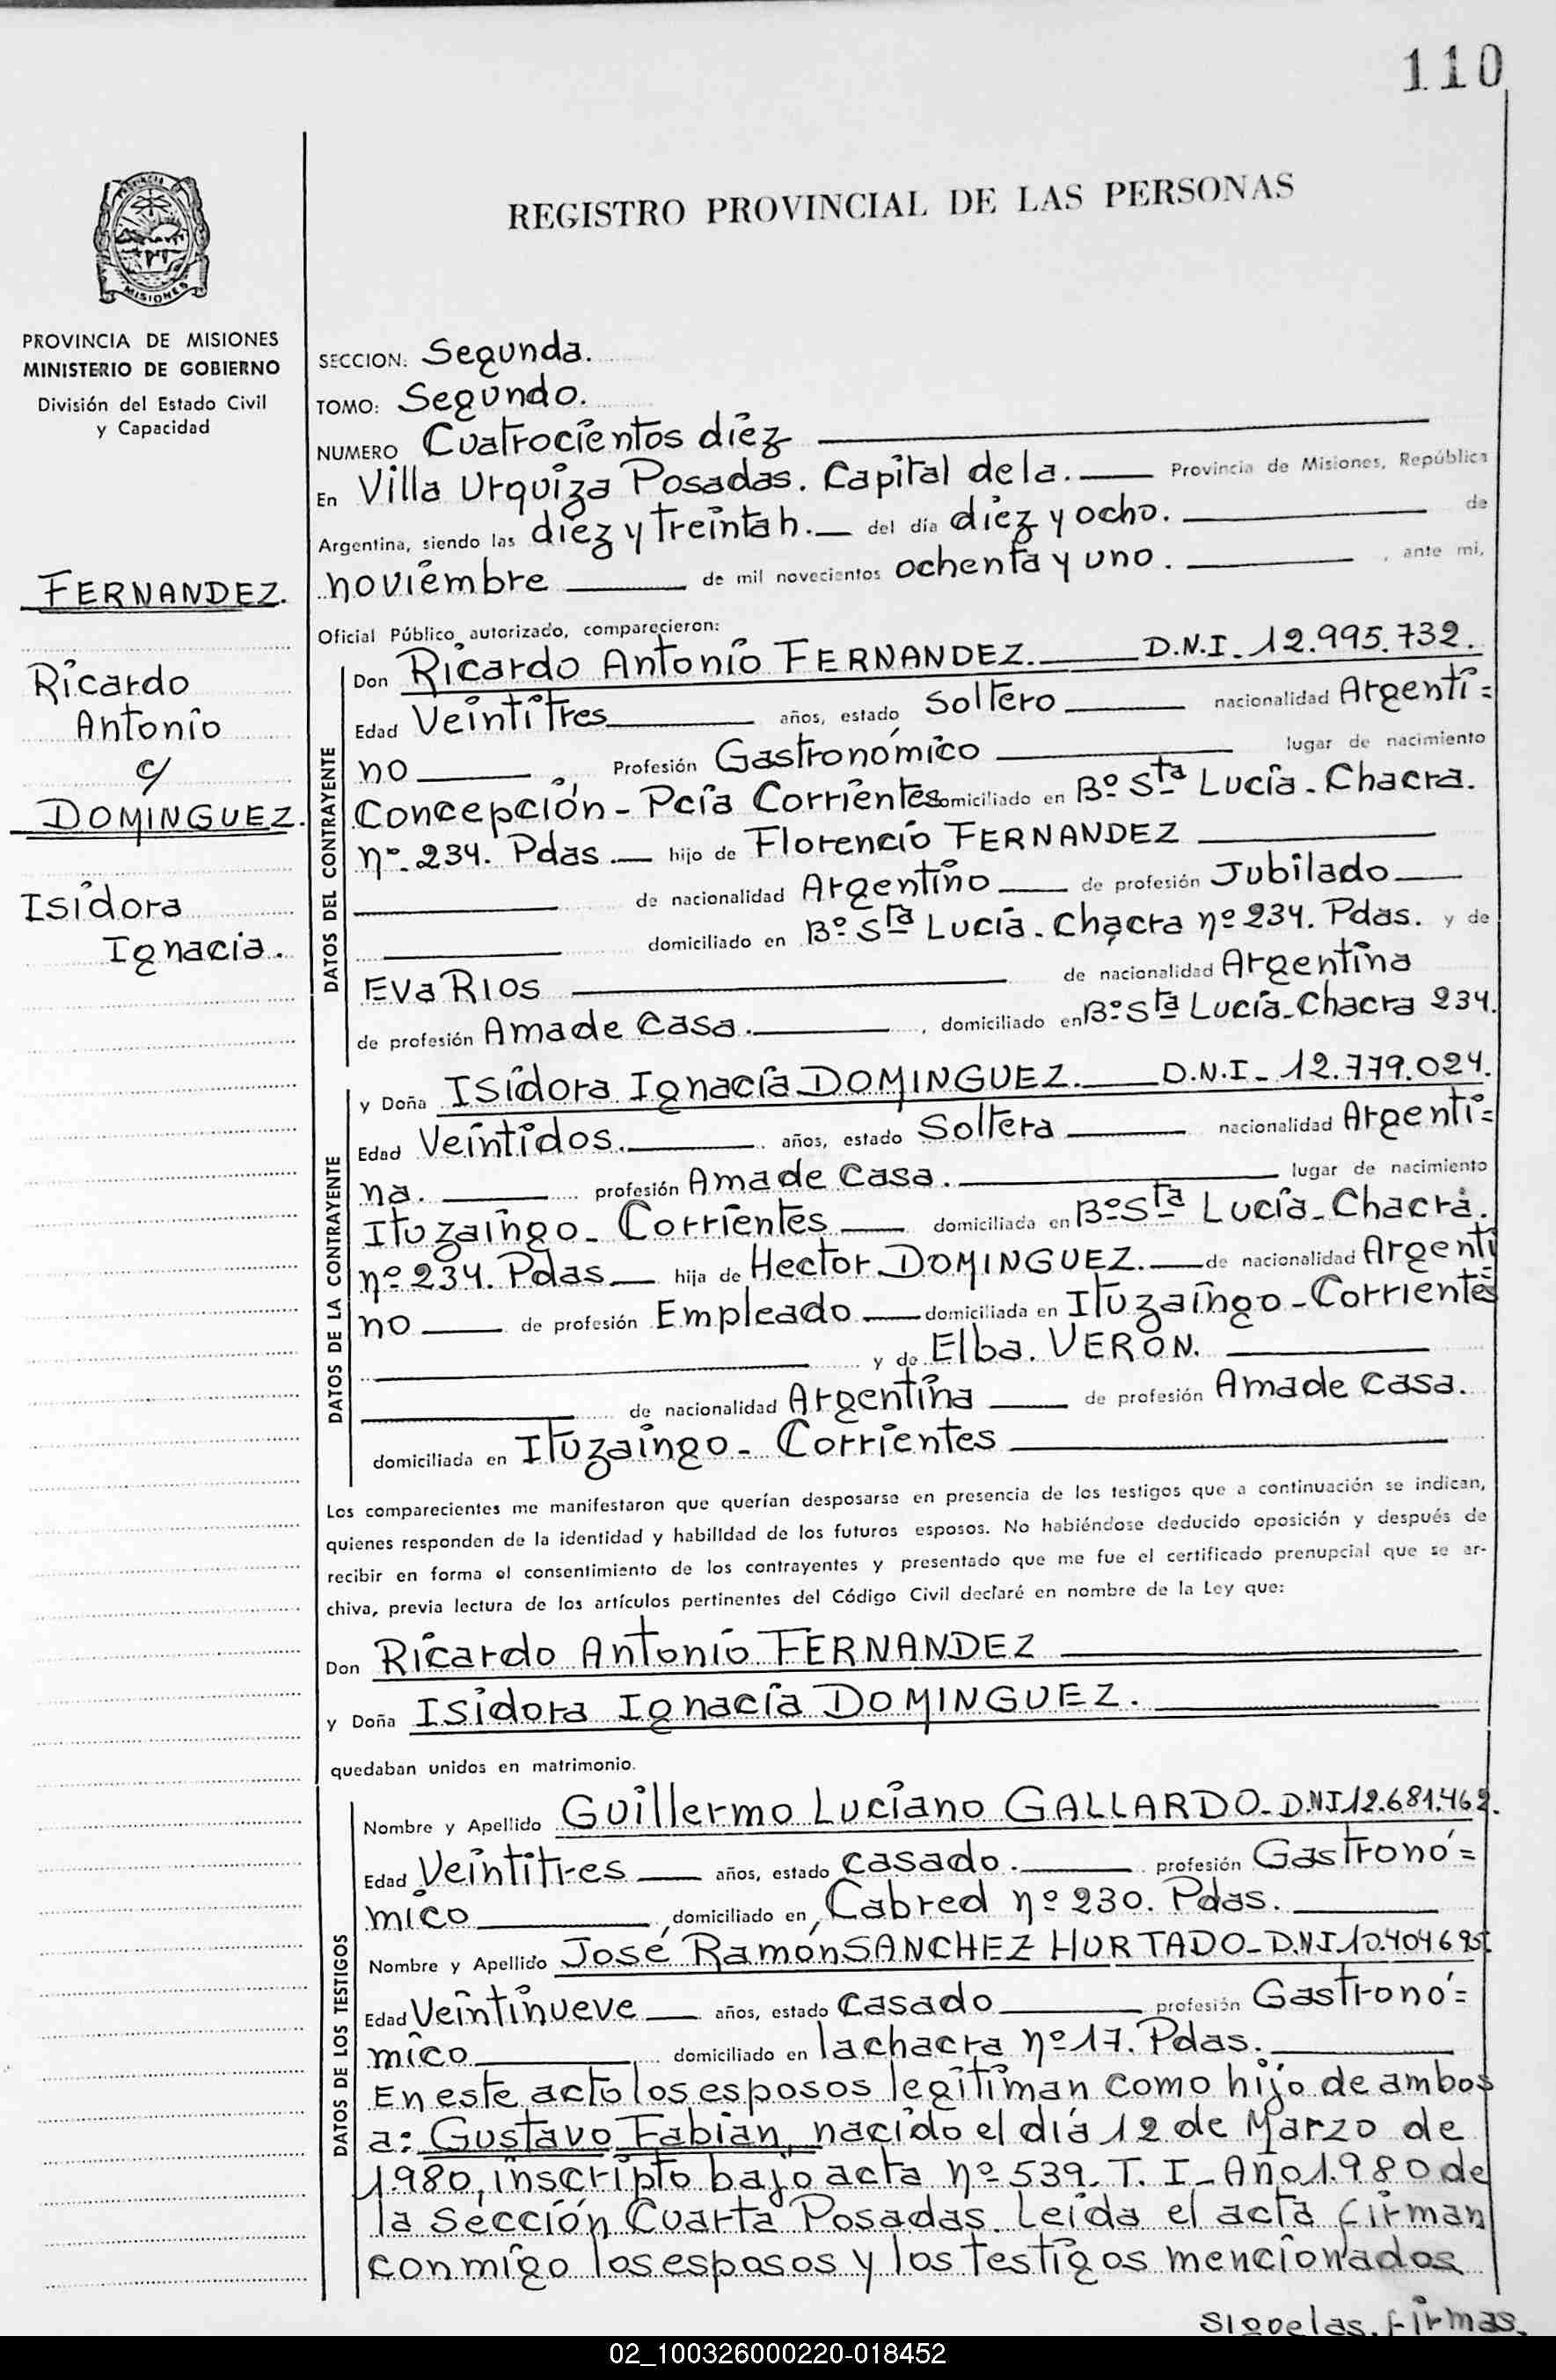 110
PROVINCIA
MISIONES
REGISTRO PROVINCIAL DE LAS PERSONAS
PROVINCIA DE MISIONES
MINISTERIO DE GOBIERNO
División del Estado Civil
y Capacidad
FERNANDEZ.
Ricardo
Antonio
c/
DOMINGUEZ.
Isidora
Ignacia.
SECCION: Segunda.
TOMO: Segundo.
NUMERO Cuatrocientos diez
En Villa Urquiza Posadas. Capital de la. Provincia de Misiones, República
Argentina, siendo las diez y treinta h. del día diez y ocho. de
noviembre de mil novecientos ochenta y uno. , ante mi,
Oficial Público autorizado, comparecieron:
DATOS DEL CONTRAYENTE
Don Ricardo Antonio FERNANDEZ. D.N.I. 12.995.732.
Edad Veintitres años, estado Soltero nacionalidad Argenti=
no Profesión Gastronómico lugar de nacimiento
Concepción - Pcia Corrientes domiciliado en Bº Sta Lucía. Chacra.
nº 234. Pdas. hijo de Florencio FERNANDEZ
de nacionalidad Argentino de profesión Jubilado
domiciliado en Bº Sta Lucía. Chacra nº 234. Pdas. y de
Eva RIOS de nacionalidad Argentina
de profesión Ama de Casa. , domiciliado en Bº Sta Lucía. Chacra 234.
DATOS DE LA CONTRAYENTE
y Doña Isidora Ignacia DOMINGUEZ. D.N.I. 12.779.024.
Edad Veintidos. años, estado Soltera nacionalidad Argenti=
na. profesión Ama de Casa. lugar de nacimiento
Ituzaingo - Corrientes domiciliada en Bº Sta Lucía - Chacra.
nº 234. Pdas hija de Hector DOMINGUEZ. de nacionalidad Argenti
no de profesión Empleado domiciliada en Ituzaingo - Corrientes
y de Elba. VERON.
de nacionalidad Argentina de profesión Ama de Casa.
domiciliada en Ituzaingo - Corrientes
Los comparecientes me manifestaron que querían desposarse en presencia de los testigos que a continuación se indican,
quienes responden de la identidad y habilidad de los futuros esposos. No habiéndose deducido oposición y después de
recibir en forma el consentimiento de los contrayentes y presentado que me fue el certificado prenupcial que se ar-
chiva, previa lectura de los artículos pertinentes del Código Civil declaré en nombre de la Ley que:
Don Ricardo Antonio FERNANDEZ
y Doña Isidora Ignacia DOMINGUEZ.
quedaban unidos en matrimonio.
DATOS DE LOS TESTIGOS
Nombre y Apellido Guillermo Luciano GALLARDO - D.N.I 12.681.462.
Edad Veintitres años, estado casado. profesión Gastronó=
mico , domiciliado en Cabred nº 230. Pdas.
Nombre y Apellido José Ramón SANCHEZ HURTADO - D.N.I 10.404695.
Edad Veintinueve años, estado casado profesión Gastronó=
mico domiciliado en la chacra nº 17. Pdas.
En este acto los esposos legitiman como hijo de ambos
a: Gustavo Fabián, nacido el día 12 de Marzo de
1.980, inscripto bajo acta nº 539. T. I - Año 1.980 de
la Sección Cuarta Posadas. Leída el acta firman
conmigo los esposos y los testigos mencionados
siguelas. firmas.
02_100326000220-018452